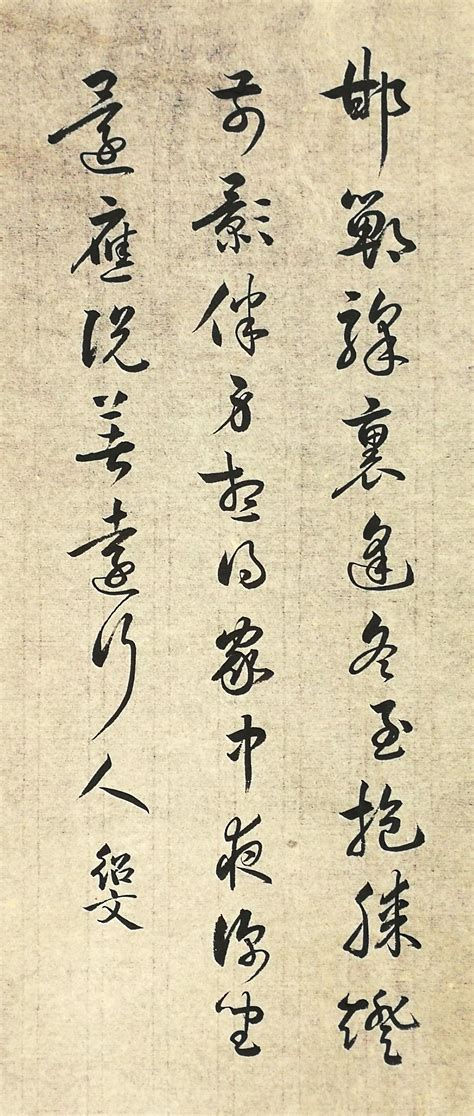 邯鄲驛裏逢冬至抱膝燈
前影伴身想得家中夜深坐
還應說著遠行人 紹文